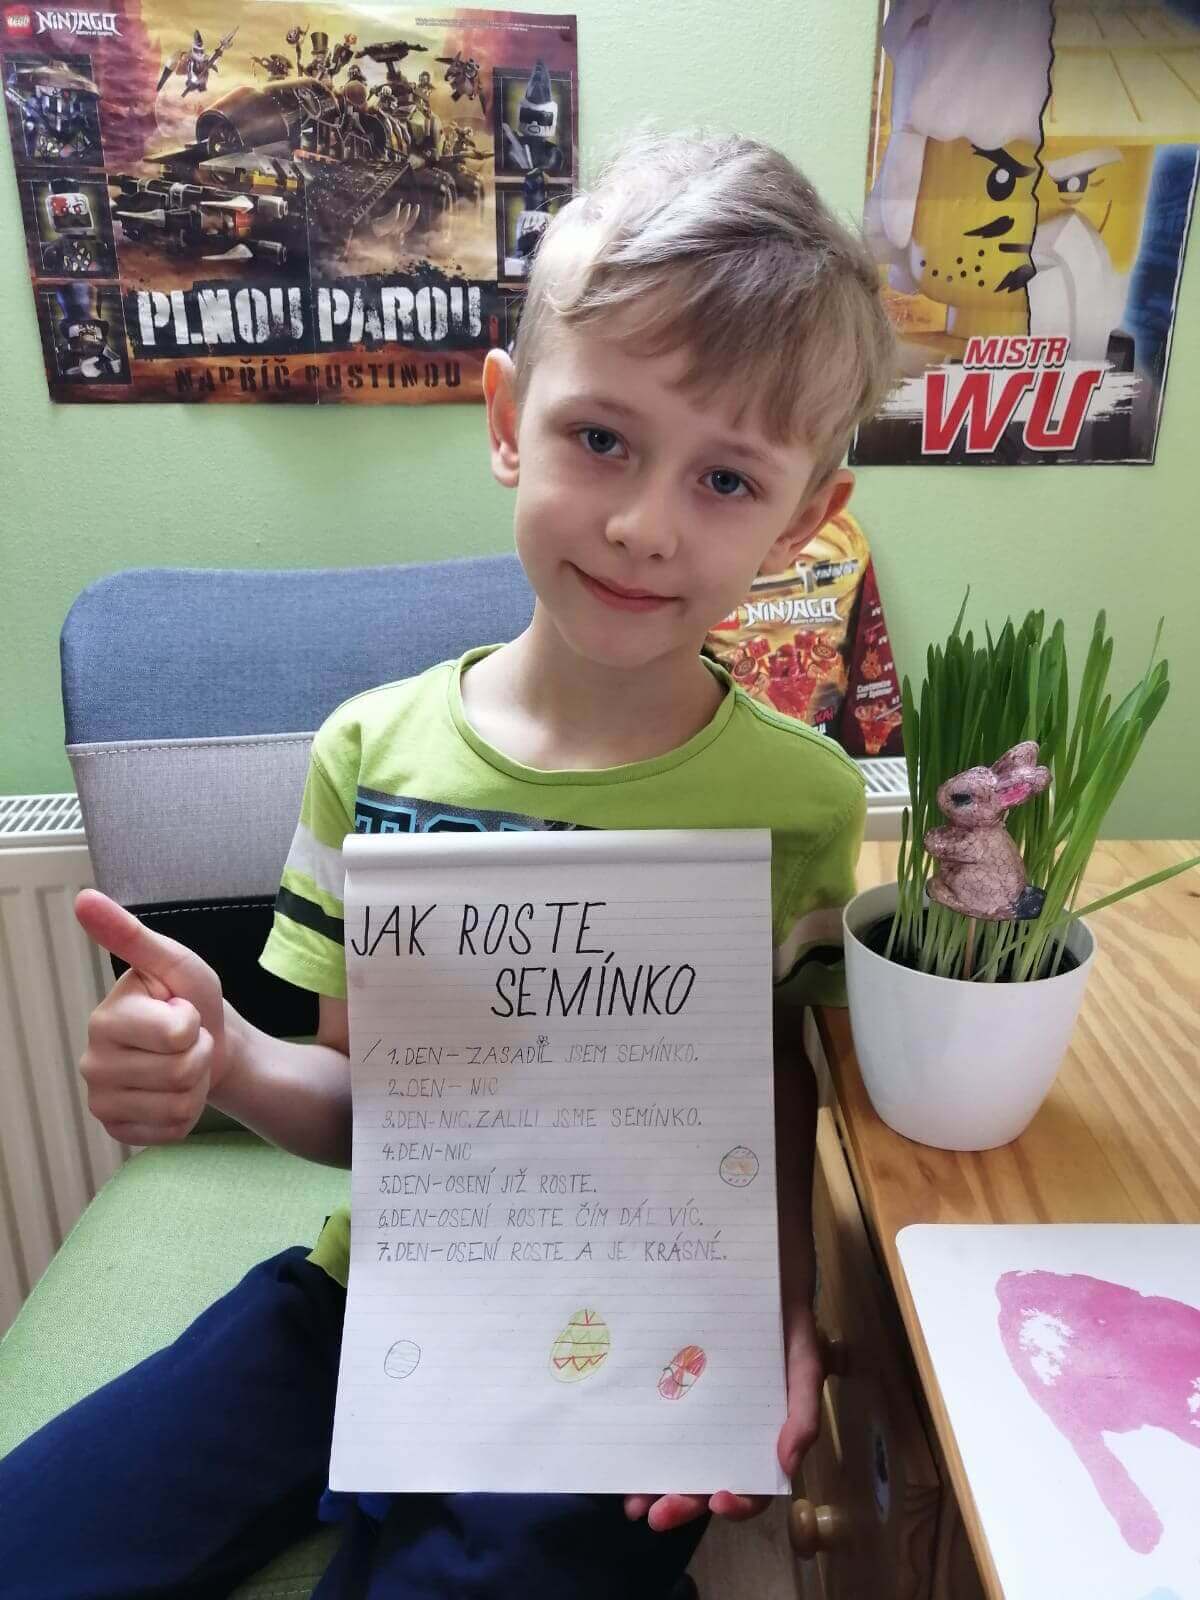 LEGO NINJAGO
Masters of Spinjitzu
PLNOU PAROU
NAPŘÍČ PUSTINOU
MISTR
WU
NINJAGO
Masters of Spinjitzu
Customize
your Spinner
KAI
JAK ROSTE
SEMÍNKO
1. DEN - ZASADIL JSEM SEMÍNKO.
2. DEN - NIC
3. DEN - NIC. ZALILI JSME SEMÍNKO.
4. DEN - NIC
5. DEN - OSENÍ JIŽ ROSTE.
6. DEN - OSENÍ ROSTE ČÍM DÁL VÍC.
7. DEN - OSENÍ ROSTE A JE KRÁSNÉ.